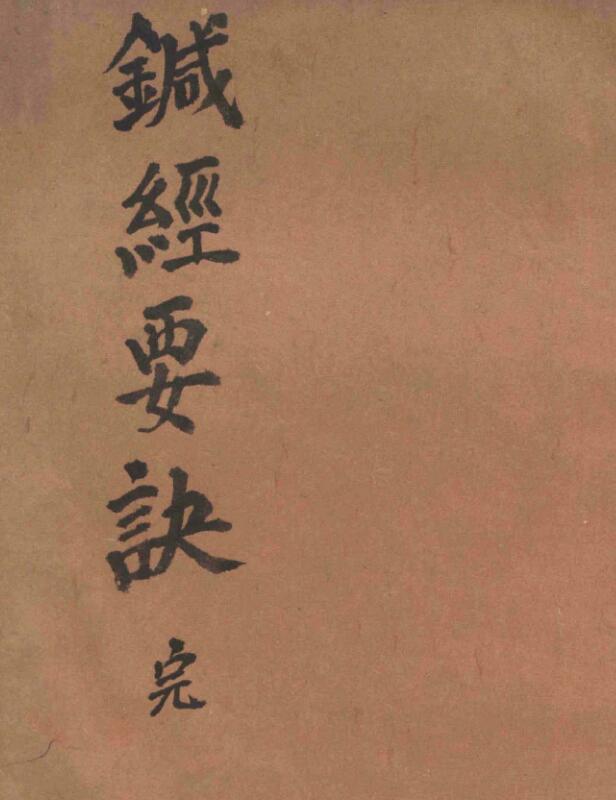 鍼經要訣 完